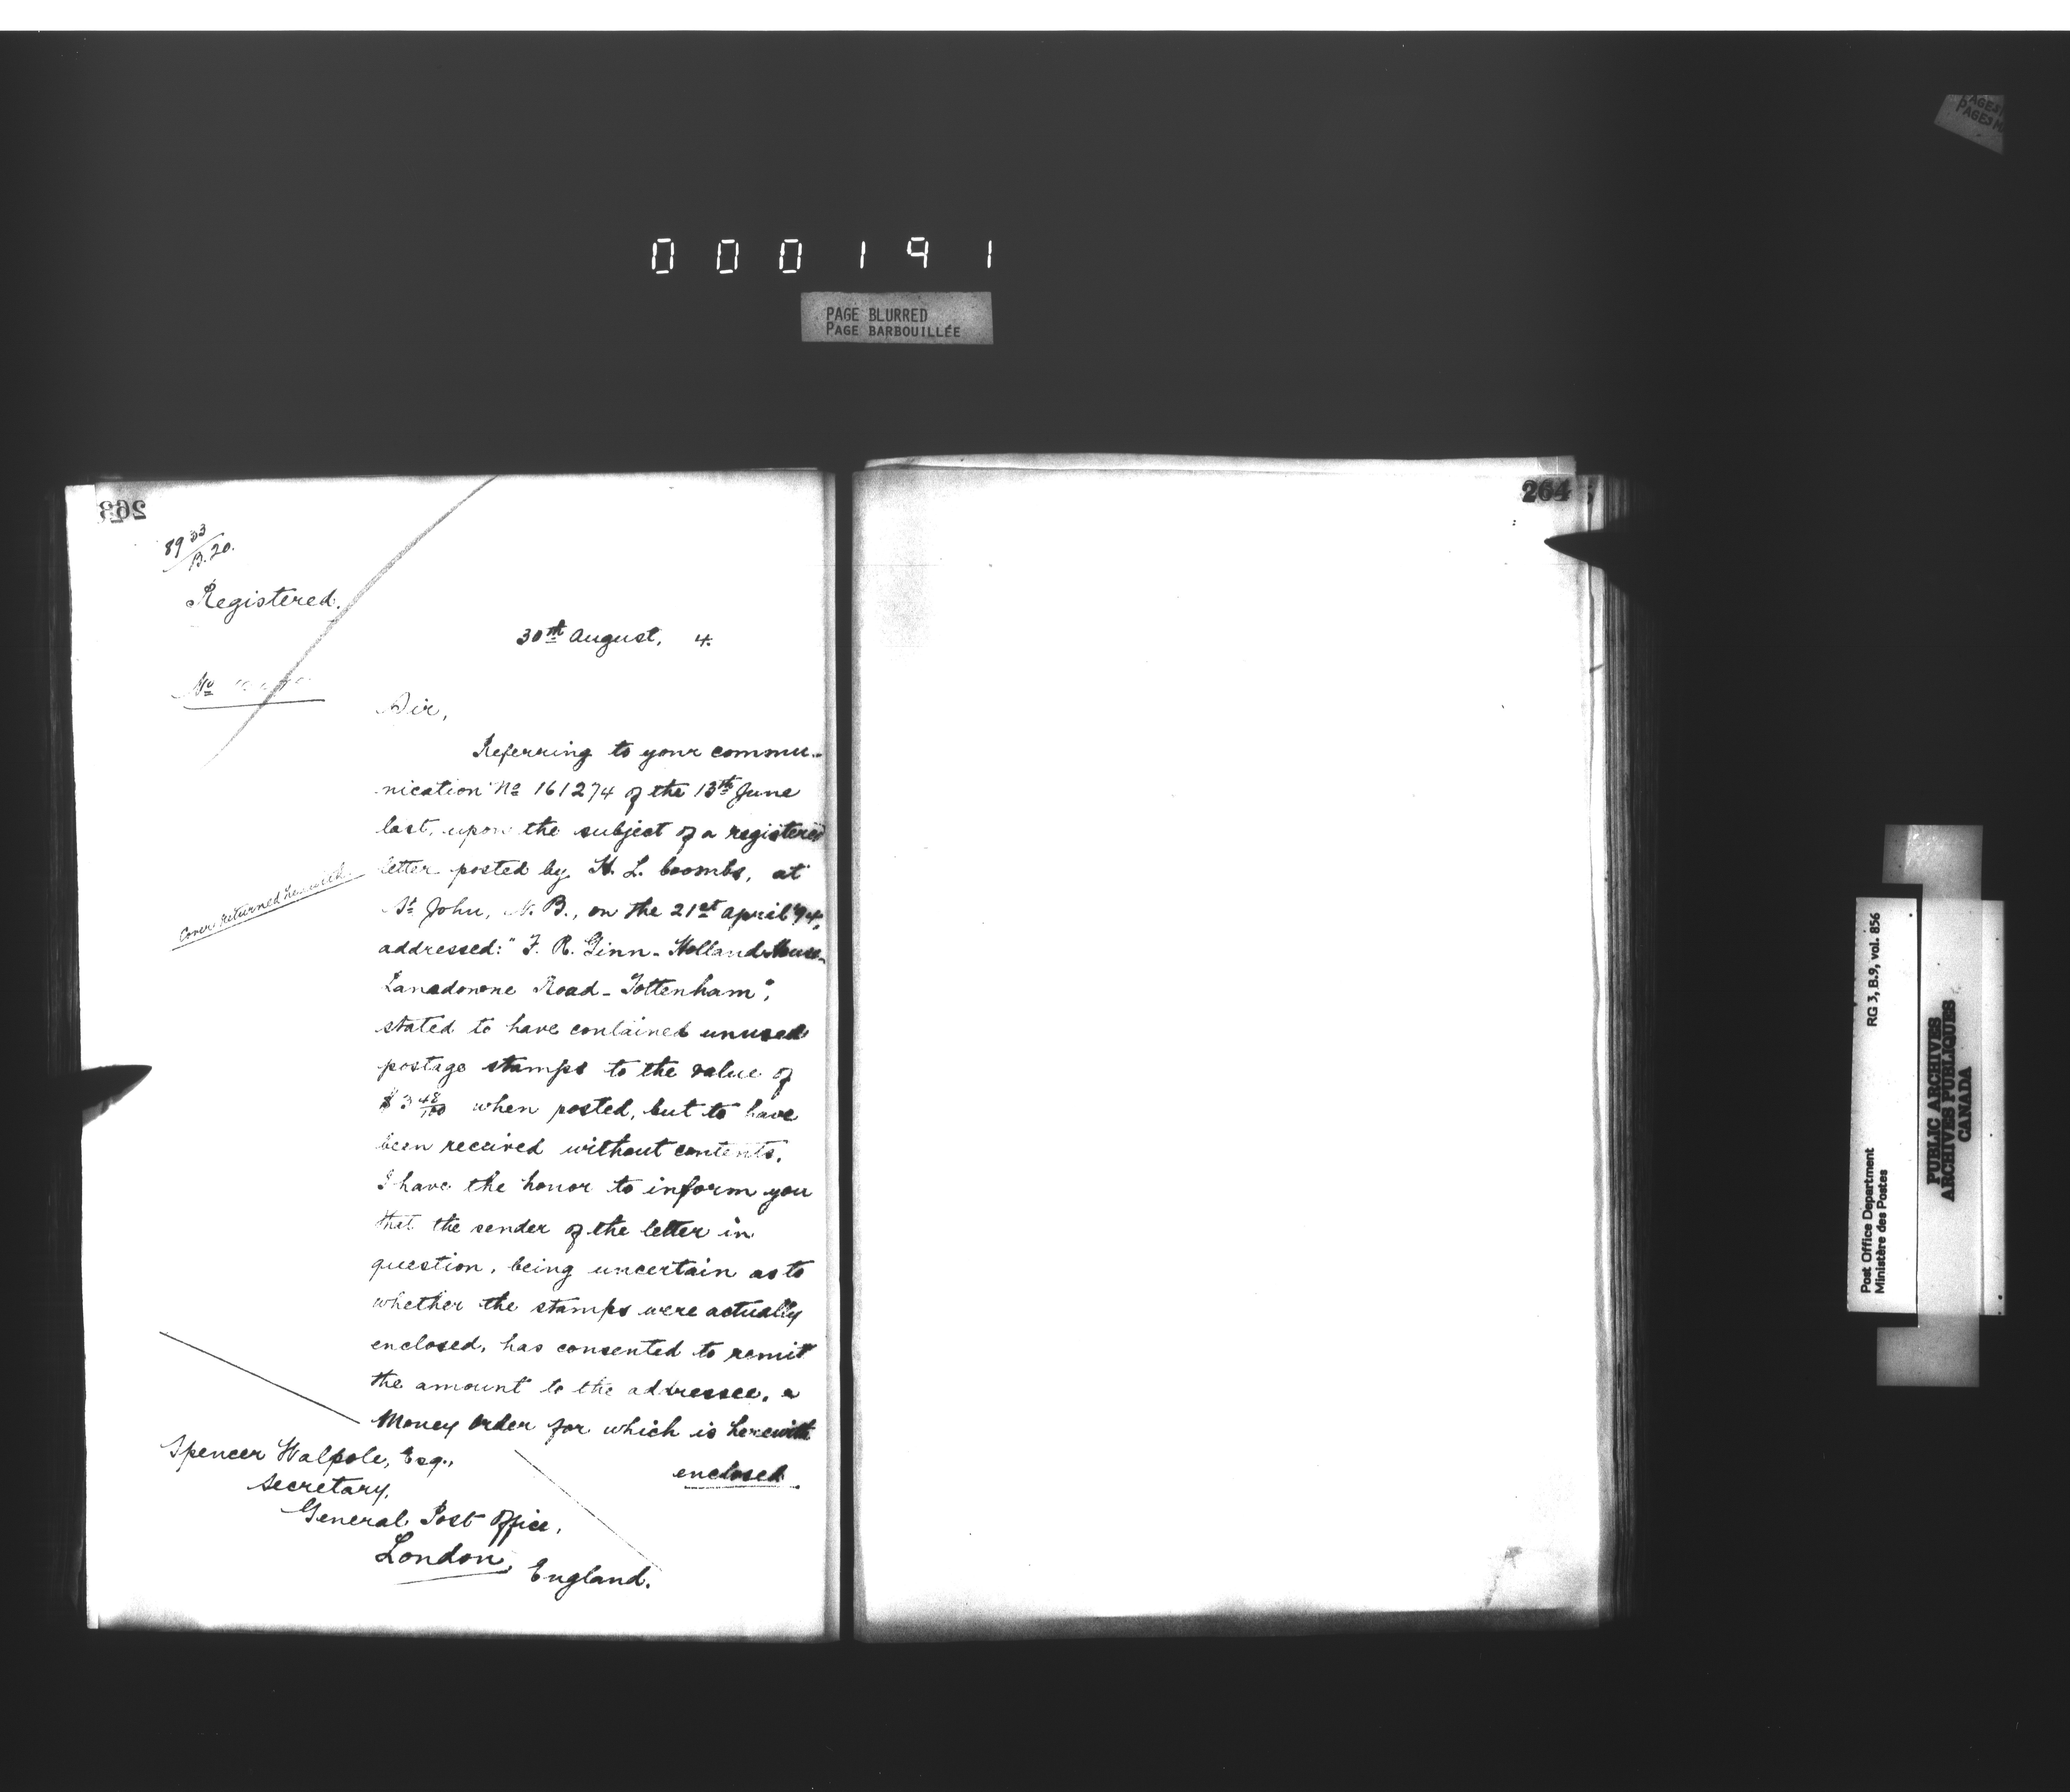 000191
PAGE BLURRED
PAGE BARBOUILLÉE
263
264
89 33/B.20.
Registered.
30th August, 4.
No
Sir,
Referring to your commu-
nication No 161274 of the 13th June
last, upon the subject of a registered
letter posted by H. L. Coombs, at
St John, N. B., on the 21st April '94,
addressed: "F. R. Ginn - Holland House -
Lansdowne Road - Tottenham",
stated to have contained unused
postage stamps to the value of
$3 48/100 when posted, but to have
been received without contents,
I have the honor to inform you
that the sender of the letter in
question, being uncertain as to
whether the stamps were actually
enclosed, has consented to remit
the amount to the addressee, a
Money Order for which is herewith
enclosed.
Cover returned herewith
Spencer Walpole, Esq.,
Secretary,
General Post Office,
London,
England.
RG 3, B.9, vol. 856
Post Office Department
Ministère des Postes
PUBLIC ARCHIVES
ARCHIVES PUBLIQUES
CANADA